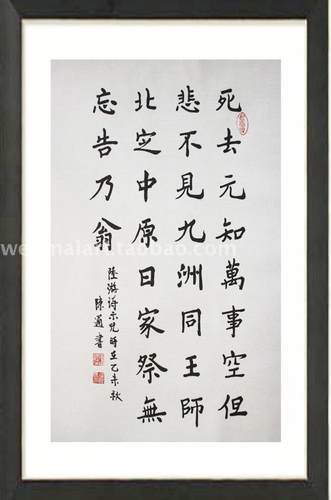 死去元知萬事空但
悲不見九洲同王師
北定中原日家祭無
忘告乃翁
陸游詩示兒時在乙未秋
陳書
taobao.com